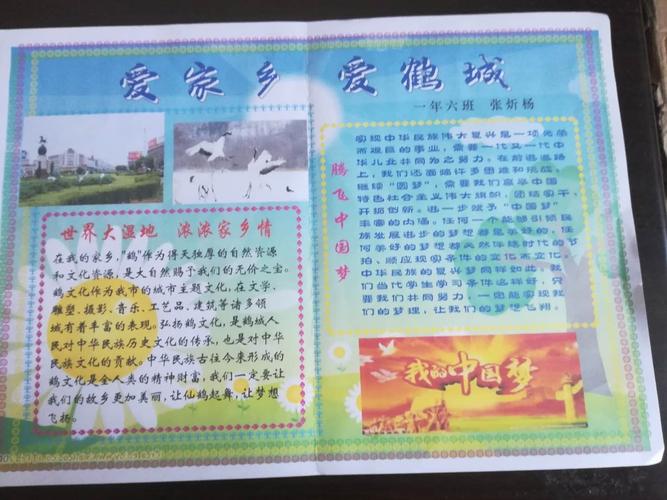 爱家乡 爱鹤城
一年六班 张炘杨
世界大湿地 浓浓家乡情
在我的家乡，"鹤"作为得天独厚的自然资源
和文化资源，是大自然赐予我们的天价之宝。
鹤文化作为我市的城市主题文化，在文学、
雕塑、摄影、音乐、工艺品、建筑等诸多领
域有着丰富的表现。弘扬鹤文化，是鹤城人
民对中华民族历史文化的传承，也是对中华
民族文化的贡献。中华民族古往今来形成的
鹤文化是全人类的精神财富，我们一定要让
我们的故乡更加美丽，让仙鹤起舞，让梦想
飞扬。
腾飞中国梦
实现中华民族伟大复兴是一项光荣
而艰巨的事业，需要一代又一代中
华儿女共同为之努力。在前进道路
上，我们还面临许多困难和
继续"圆梦"，需要我们高举中国
特色社会主义伟大旗帜，团结实干，
开拓创新，进一步赋予"中国梦"
丰富的内涵。任何一个能够引领民
族发展进步的梦想都是美好的，任
何美好的梦想都必然伴随时代的节
拍，顺应现实条件的变化而变化。
中华民族的复兴梦同样如此。我
们当代学生学习条件这样好，只
要我们共同努力，一定能实现我
们的梦理，让我们的梦想飞翔。
我的中国梦